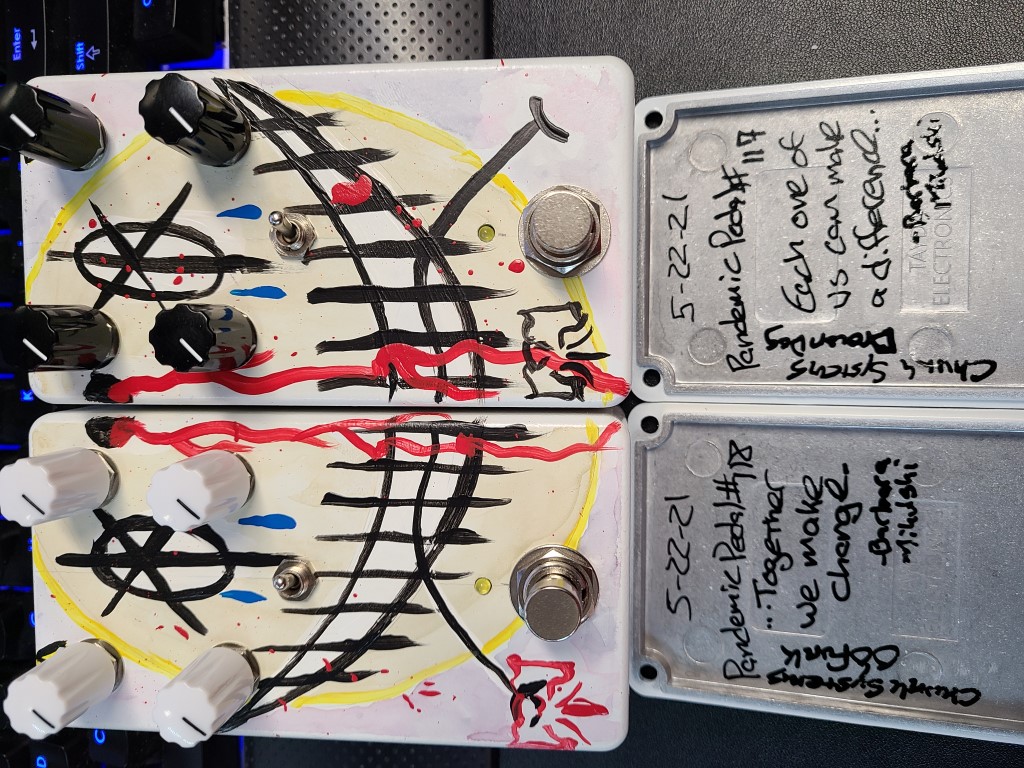 Enter
Shift
K
5-22-21
Pandemic Pedal #118
...Together
we make
change.
-Barbara
Mikulski
Chunk Systems
OBFunk
5-22-21
Pandemic Pedal #117
Each one of
us can make
a difference...
-Barbara
Mikulski
Chunk Systems
Brown Dog
ELECTRONICS